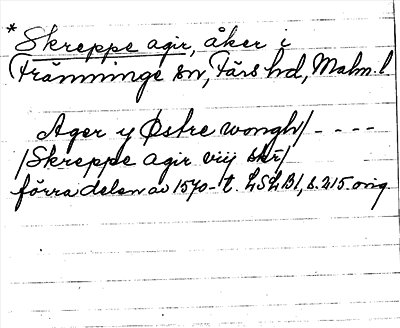 *Skreppe agir, åker i
Tränninge sn, Färs hd, Malm. l
Ager y Østre wongh/ - - - -
/Skreppe agir viij sk̃r/
förra delen av 1570-t. LSLB1, s. 215. orig